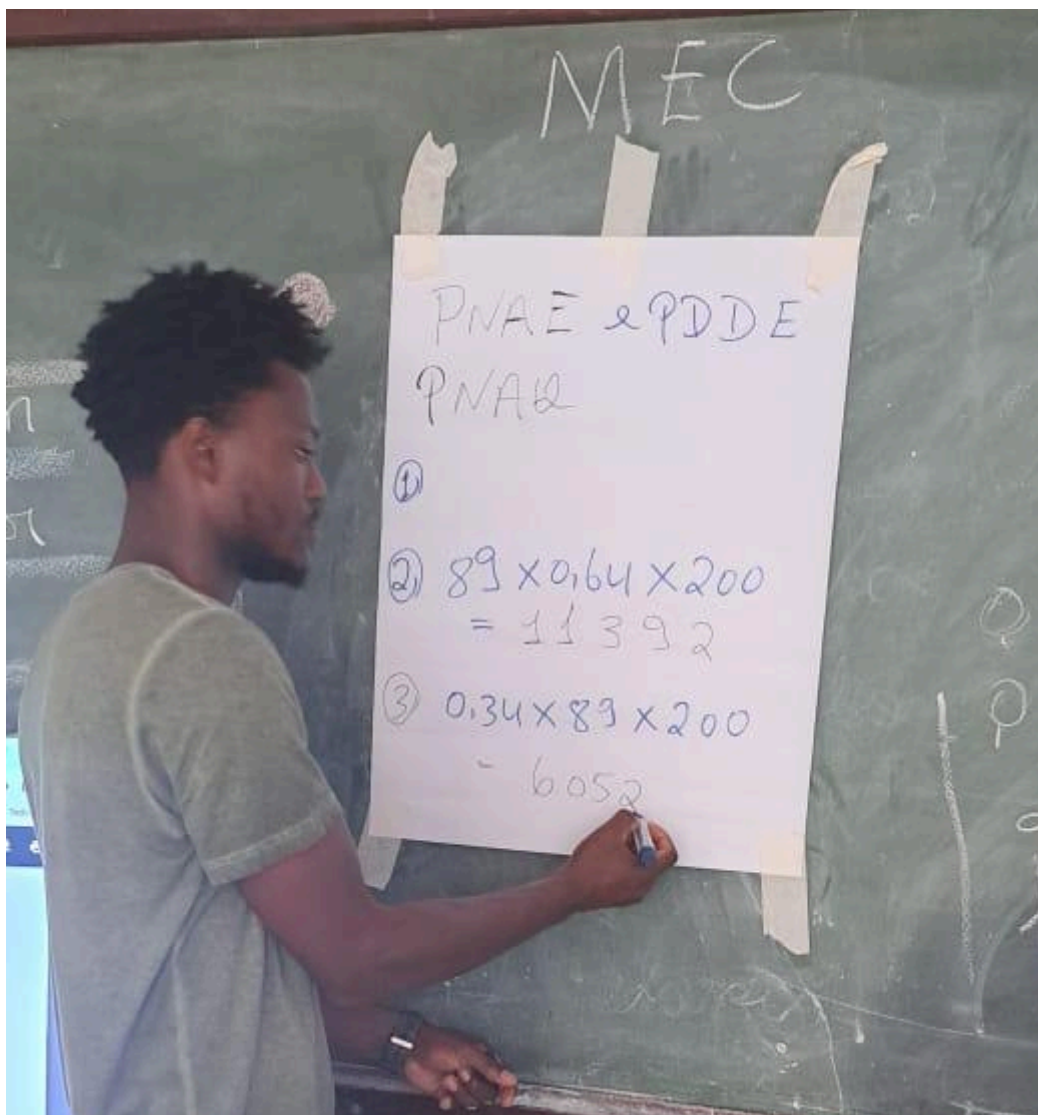 MEC
PNAE e PDDE
PNAQ
①
② 89 x 0,64 x 200
= 11392
③ 0,34 x 89 x 200
- 6052